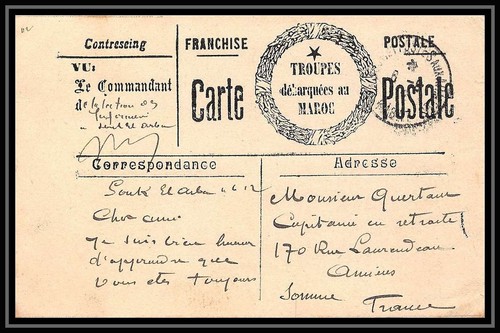 Contreseing
FRANCHISE
POSTALE
VU:
Le Commandant
de la section
Carte
TROUPES
débarquées au
MAROC
Postale
Correspondance
Adresse
Souk El Arba
Cher ami
Je suis bien heureux
d'apprendre que
vous êtes toujours
Monsieur Quertant
Capitaine en retraite
170 Rue Laurendeau
Amiens
Somme France